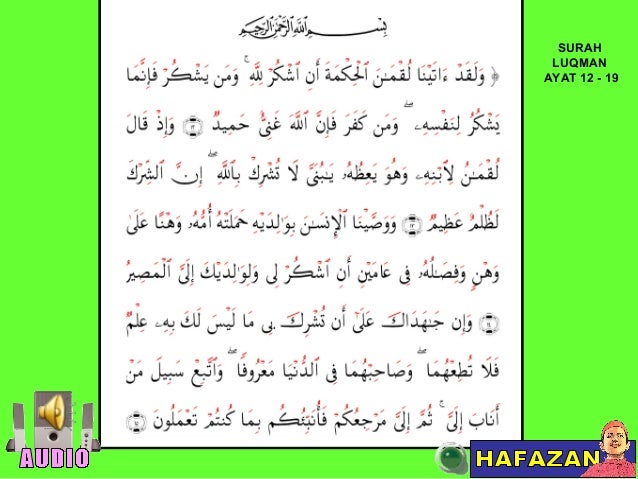 بِسْمِ ٱللَّهِ ٱلرَّحْمَٰنِ ٱلرَّحِيمِ
﴿ وَلَقَدْ ءَاتَيْنَا لُقْمَـٰنَ ٱلْحِكْمَةَ أَنِ ٱشْكُرْ لِلَّهِ ۚ وَمَن يَشْكُرْ فَإِنَّمَا
يَشْكُرُ لِنَفْسِهِۦ ۖ وَمَن كَفَرَ فَإِنَّ ٱللَّهَ غَنِىٌّ حَمِيدٌ ۝١٢ وَإِذْ قَالَ
لُقْمَـٰنُ لِٱبْنِهِۦ وَهُوَ يَعِظُهُۥ يَـٰبُنَىَّ لَا تُشْرِكْ بِٱللَّهِ ۖ إِنَّ ٱلشِّرْكَ
لَظُلْمٌ عَظِيمٌ ۝١٣ وَوَصَّيْنَا ٱلْإِنسَـٰنَ بِوَٰلِدَيْهِ حَمَلَتْهُ أُمُّهُۥ وَهْنًا عَلَىٰ
وَهْنٍ وَفِصَـٰلُهُۥ فِى عَامَيْنِ أَنِ ٱشْكُرْ لِى وَلِوَٰلِدَيْكَ إِلَىَّ ٱلْمَصِيرُ
۝١٤ وَإِن جَـٰهَدَاكَ عَلَىٰٓ أَن تُشْرِكَ بِى مَا لَيْسَ لَكَ بِهِۦ عِلْمٌ
فَلَا تُطِعْهُمَا ۖ وَصَاحِبْهُمَا فِى ٱلدُّنْيَا مَعْرُوفًا ۖ وَٱتَّبِعْ سَبِيلَ مَنْ
أَنَابَ إِلَىَّ ۚ ثُمَّ إِلَىَّ مَرْجِعُكُمْ فَأُنَبِّئُكُم بِمَا كُنتُمْ تَعْمَلُونَ ۝١٥
SURAH
LUQMAN
AYAT 12 - 19
AUDIO
HAFAZAN